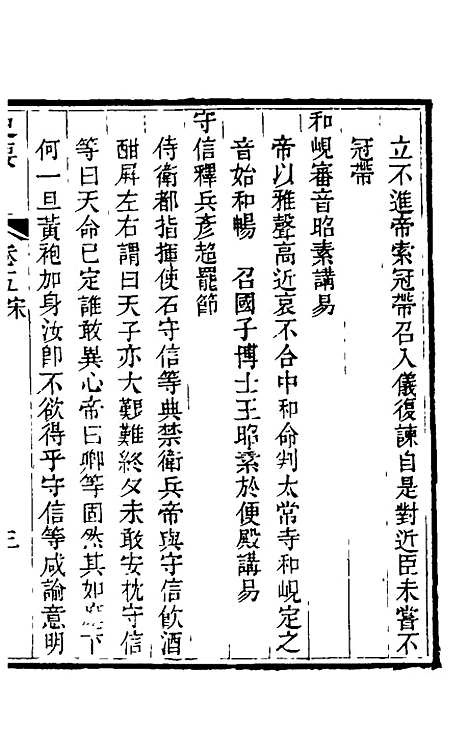 立不進帝索冠帶召入儀復諫自是對近臣未嘗不
冠帶
和峴審音昭素講易
帝以雅聲高近哀不合中和命判太常寺和峴定之
音始和暢　召國子博士王昭素於便殿講易
守信釋兵彥超罷節
侍衛都指揮使石守信等典禁衛兵帝與守信飲酒
酣屏左右謂曰天子亦大艱難終夕未敢安枕守信
等曰天命已定誰敢異心帝曰卿等固然其如麾下
何一旦黃袍加身汝卽不欲得乎守信等咸諭意明
卷五宋
三